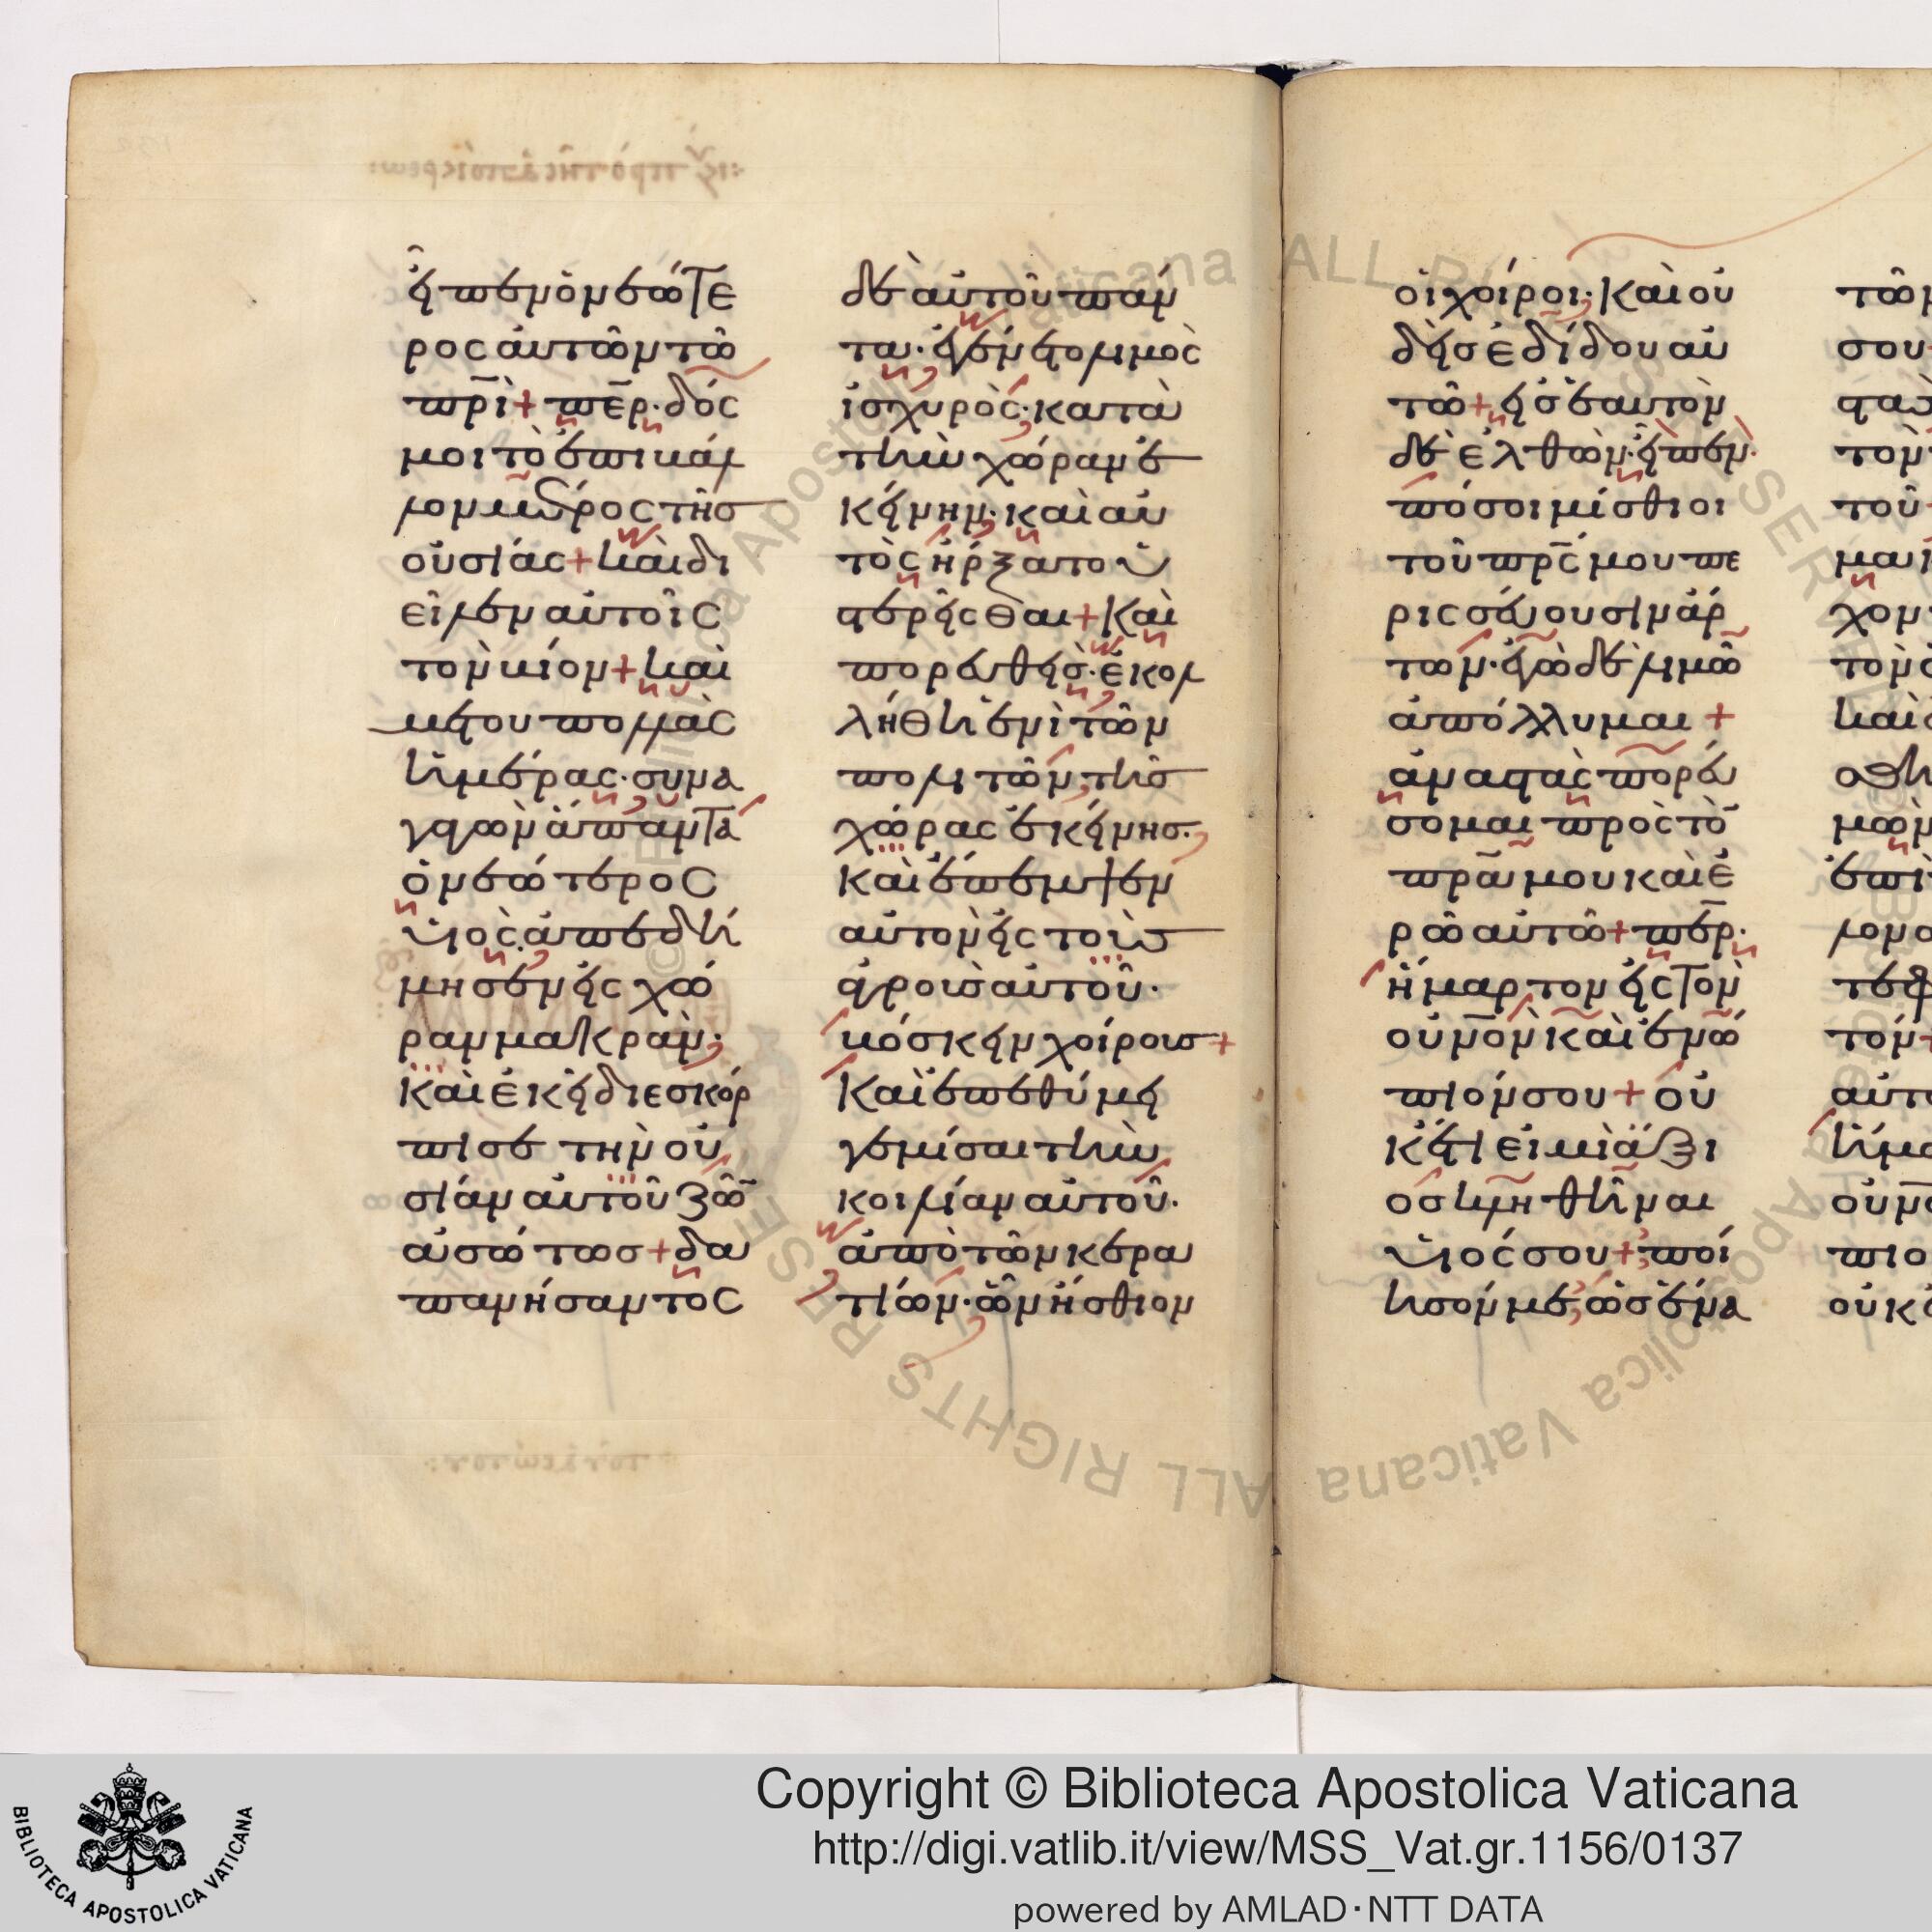 εἶπεν ὁ νεώτε
ρος αὐτῶν τῶ
πρι+ περ· δός
μοι τὸ ἐπιβάλ
λον μέρος τῆσ
οὐσίας+ καὶ δι
εῖλεν αὐτοῖς
τὸν βίον+ καὶ
μετ οὐ πολλὰς
ἡμέρας· συνα
γαγὼν ἅπαντα
ὁ νεώτερος
υἱὸς· ἀπεδή
μησεν εἰς χώ
ραν μακρὰν·
καὶ ἐκεῖ διεσκόρ
πισε τὴν οὐ
σίαν αὐτοῦ ζῶν
ἀσώτωσ+ δα
πανήσαντος
δὲ αὐτοῦ πάν
τα· ἐγένετο λιμὸς
ἰσχυρὸς· κατὰ
τὴν χώραν ἐ
κείνην· καὶ αὐ
τὸς ἤρξατο ὑ
στερεῖσθαι+ καὶ
πορευθεὶσ· ἐκολ
λήθη ἑνὶ τῶν
πολιτῶν· τῆσ
χώρας ἐκείνησ·
καὶ ἔπεμψεν
αὐτὸν εἰς τοὺσ
ἀγροὺσ αὐτοῦ·
βόσκειν χοίρουσ+
καὶ ἐπεθύμει
γεμίσαι τὴν
κοιλίαν αὐτοῦ·
ἀπὸ τῶν κερα
τίων· ὧν ἤσθιον
οἱ χοῖροι· καὶ οὐ
δεὶσ ἐδίδου αὐ
τῶ+ εἰσ ἑαυτὸν
δὲ ἐλθὼν· εἶπεν·
πόσοι μίσθιοι
τοῦ πρς μου πε
ρισσεύουσιν ἄρ
των· ἐγὼ δὲ λιμῶ
ἀπόλλυμαι+
ἀναστὰς πορεύ
σομαι πρὸς τὸν
πρα μου καὶ ἐ
ρῶ αὐτῶ+ περ·
ἥμαρτον εἰς τὸν
οὐνον καὶ ἐνώ
πιόν σου+ οὐ
κέτι εἰμὶ ἄξι
οσ κληθῆναι
υἱός σου+ ποί
ησόν με· ὡσ ἕνα
τῶν
σου+
στὰς
τὸν
τοῦ
μακ
χον
τὸν
καὶ
μὼν
ἐπὶ
τόν+
αὐτ
οὐνο
πιο
οὐκέ